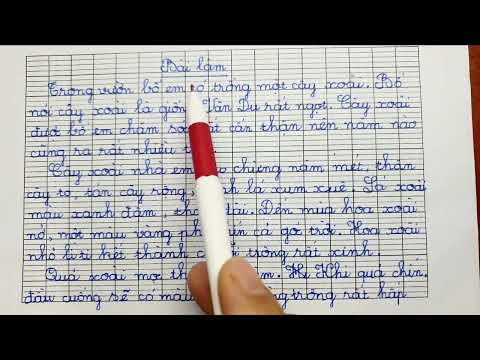 Bài làm
Trong vườn bố em trồng một cây xoài. Bố
nói cây xoài là giốn Vân Du rất ngọt. Cây xoài
được bố em chăm cẩn thận nên năm nào
cũng ra rất nhiều
Cây xoài nhà em chừng năm mét, thân
cây to, tán cây rộng, lá xum xuê. Lá xoài
màu xanh đậm, dài. Đến mùa hoa xoài
nở, một màu vàng ph kín cả góc trời. Hoa xoài
nhỏ li ti kết thành c trông rất xinh.
Quả xoài mọc th m. Khi quả chín,
đầu cuống sẽ có màu trông rất hấp